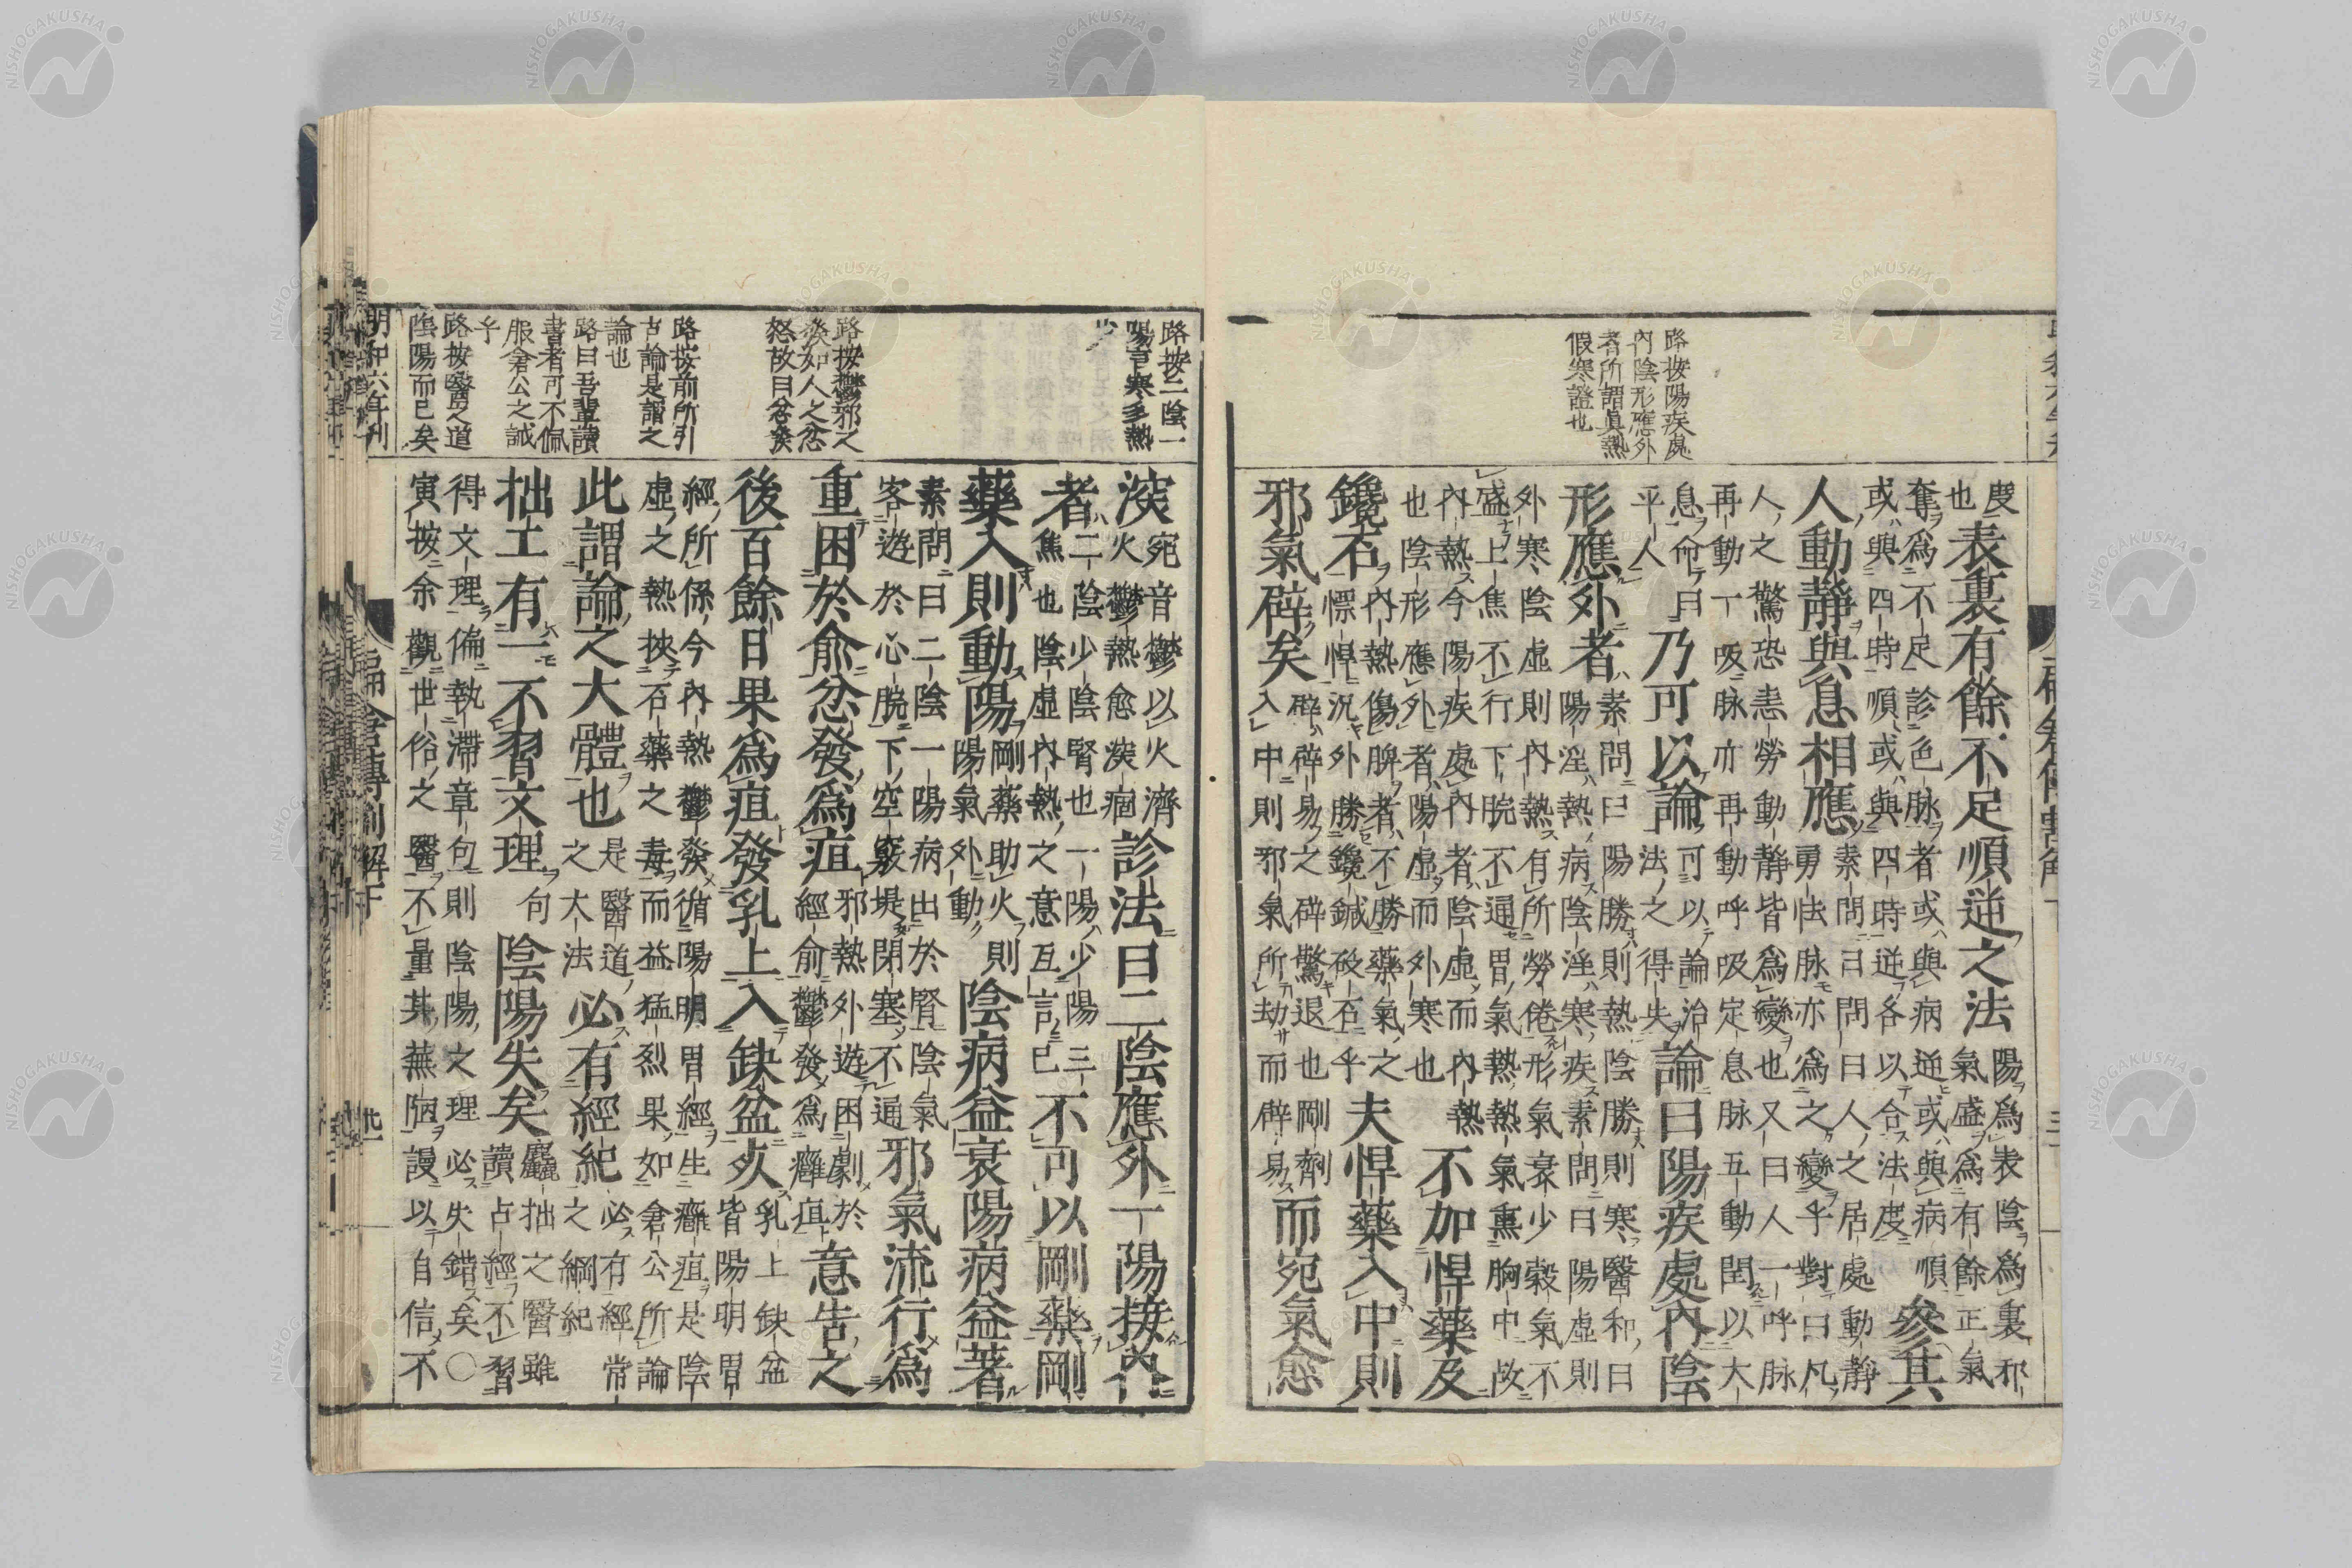 路按陽疾處
内陰形應外
者所謂眞熱
假寒證也
度
也
表裏有餘不足順逆之法
陽爲表陰爲裏邪
氣盛爲有餘正氣
奪爲不足診色脉者或與病逆或與病順
或與四時順或與四時逆各以合法度
參其
人動靜與息相應
素問曰問曰人之居處動靜
勇怯脉亦爲之變乎對曰凡
人之驚恐恚勞動靜皆爲變也又曰人一呼脉
再動一吸脉亦再動呼吸定息脉五動閏以大
息命曰
平人
乃可以論
可以論治
法之得失
論曰陽疾處內陰
形應外者
素問曰陽勝則熱陰勝則寒醫和曰
陽淫熱病陰淫寒疾素問曰陽虛則
外寒陰虛則內熱有所勞倦形氣衰少穀氣不
盛上焦不行下脘不通胃氣熱熱氣熏胸中故
內熱今陽疾處內者陰虛而內熱
也陰形應外者陽虛而外寒也
不加悍藥及
鑱石
內熱傷脾者不勝藥氣之
慓悍況外勝鑱鍼砭石乎
夫悍藥入中則
邪氣辟矣
辟辟易之辟驚退也剛劑
入中則邪氣所劫而辟易
而宛氣愈
路按二陰一
陽言寒多熱
少
路按鬱邪之
發如人之忿
怒故曰忿發
路按前所引
古論是謂之
論也
路曰吾輩讀
書者可不佩
服倉公之誠
乎
路按醫之道
陰陽而已矣
深
宛音鬱以火濟
火鬱熱愈深痼
診法曰二陰應外一陽接內
者
二陰少陰腎也一陽少陽三
焦也陰虛內熱之意互言已
不可以剛藥剛
藥入則動陽
剛藥助火則
陽氣外動
陰病益衰陽病益著
素問曰二陰一陽病出於腎陰氣
客遊於心脘下空竅堤閉塞不通
邪氣流行爲
重困於俞忿發爲疽
邪熱外遊困劇於
經俞鬱發爲癰疽
意告之
後百餘日果爲疽發乳上入缺盆死
乳上缺盆
皆陽明胃
經所係今內熱鬱發循陽明胃經生癰疽是陰
虛之熱挾石藥之毒而益猛烈果如倉公所論
此謂論之大體也
是醫道
之大法
必有經紀
必有經常
之綱紀
拙工有一不習文理
句
陰陽失矣
麤拙之醫雖
讀占經不習
得文理偏執滯章句則陰陽之理必失錯矣○
寅按余觀世俗之醫不量其蕪陋謾以自信不
明和六年刊